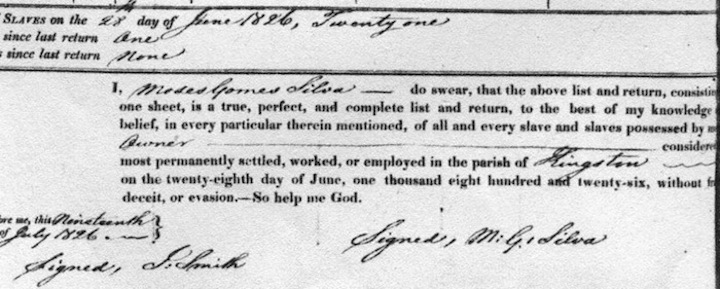 SLAVES on the 28th day of June 1826, Twenty one
since last return One
since last return None
I, Moses Gomes Silva — do swear, that the above list and return, consistin
one sheet, is a true, perfect, and complete list and return, to the best of my knowledge
belief, in every particular therein mentioned, of all and every slave and slaves possessed by
Owner — considere
most permanently settled, worked, or employed in the parish of Kingston
on the twenty-eighth day of June, one thousand eight hundred and twenty-six, without
deceit, or evasion.—So help me God.
re me, this Nineteenth
of July 1826
Signed, M. G. Silva
Signed, J. Smith